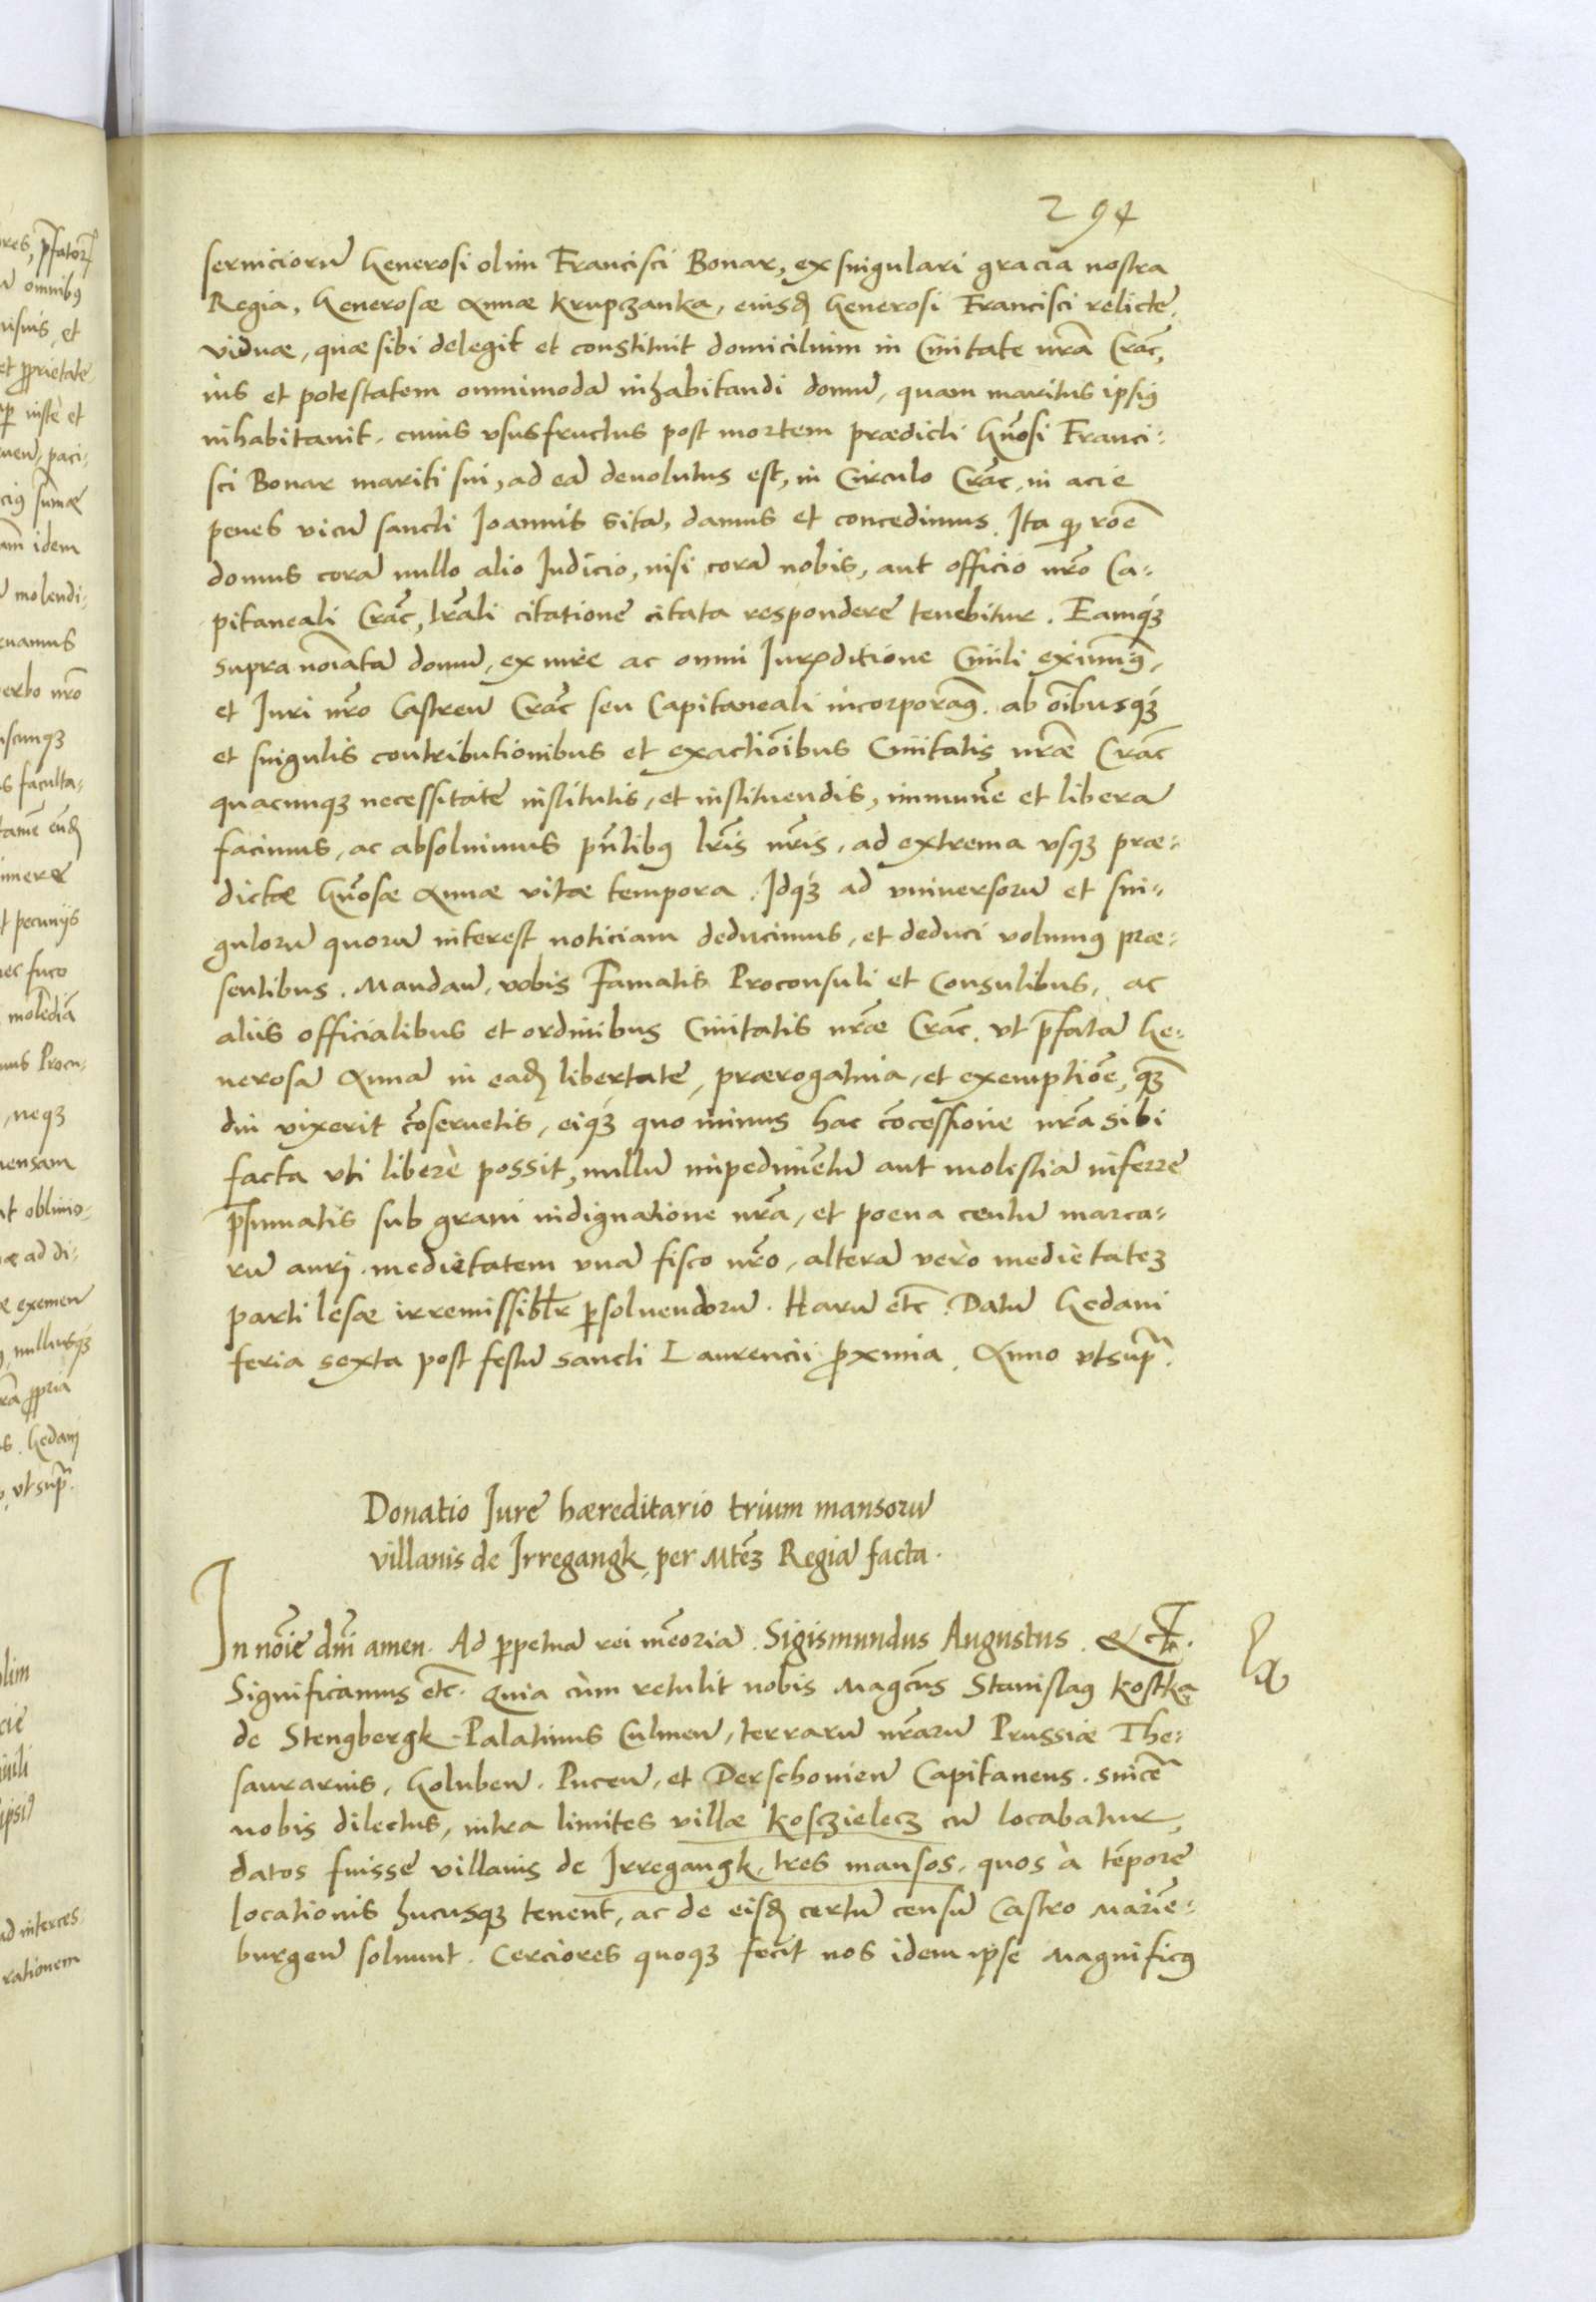 294
seruiciorū Generosi olim Francisci Bonar, ex singulari gracia nostra
Regia, Generosæ Annæ Krupczanka, eiusdē Generosi Francisci relictę
viduæ, quæ sibi delegit et constituit domicilium in Ciuitate nrā Crāc,
ius et potestatem omnimodā inhabitandi domū, quam maritus ipsiꝰ
inhabitauit, cuius vsusfructus post mortem prædicti Gnōsi Franci-
sci Bonar mariti sui, ad eā deuolutus est, in Circulo Crāc, in acie
penes vicū sancti Ioannis sitā, damus et concedimus. Ita qꝫ rōe
domus corā nullo alio Iudicio, nisi corā nobis, aut officio nrō Ca-
pitaneali Crāc, lrāli citatione citata respondere tenebitur. Eamqꝫ
supra noīatā domū, ex iure ac omni Iurꝫditione Ciuili eximimꝰ,
et Iuri nrō Castren̄ Crāc seu Capitaneali incorporamꝰ. ab oībusqꝫ
et singulis contributionibus et exactiōibus Ciuitatis nrāe Crāc
quacunqꝫ necessitate institutis, et instituendis, immunē et liberā
facimus, ac absoluimus pn̄tibꝰ lrīs nrīs, ad extrema vsqꝫ præ-
dictæ Gnōsæ Annæ vitæ tempora. Idqꝫ ad vniuersorū et sin-
gulorū quorū interest noticiam deducimus, et deduci volumꝰ præ-
sentibus. Mandan̄, vobis Famatis Proconsuli et Consulibus, ac
aliis officialibus et ordinibus Ciuitatis nrāe Crāc. vt p̄fatā Ge-
nerosā Annā in eadē libertate, prærogatiua, et exemptiōe, qꝫ
diu vixerit cōseruetis, eiqꝫ quo minus hac cōcessione nrā sibi
facta vti liberè possit, nullū impedimētū aut molestiā inferre
p̄sumatis sub graui indignatione nrā, et poena centū marca-
rū auri. medietatem vnā fisco nrō, alterā verò medietatē
parti lesæ irremissiblr ꝑsoluendorū. Harū etc. Datū Gedani
feria sexta post festū sancti Laurencii ꝓxima. Anno vt sup̄.
Donatio Iure hæreditario trium mansorū
villanis de Irregangk, per Mtēꝫ Regiā facta.
In nōie dn̄i amen. Ad ꝑpetuā rei mēoriā. Sigismundus Augustus. &c.
Significamus etc. Quia cùm retulit nobis Magcūs Stanislaꝰ Kostka
de Stengbergk Palatinus Culmen̄, terrarū nrārū Prussiæ The-
saurarius, Goluben̄. Pucen̄, et Derschouien̄ Capitaneus. sincē
nobis dilectus, intra limites villæ Kosczielecz cū locabatur,
datos fuisse villanis de Irregangk, tres mansos, quos à tēpore
locationis hucusqꝫ tenent, ac de eisdē certū censū Castro Mariē-
burgen̄ soluunt. Cerciores quoqꝫ fecit nos idem ipse Magnificꝰ